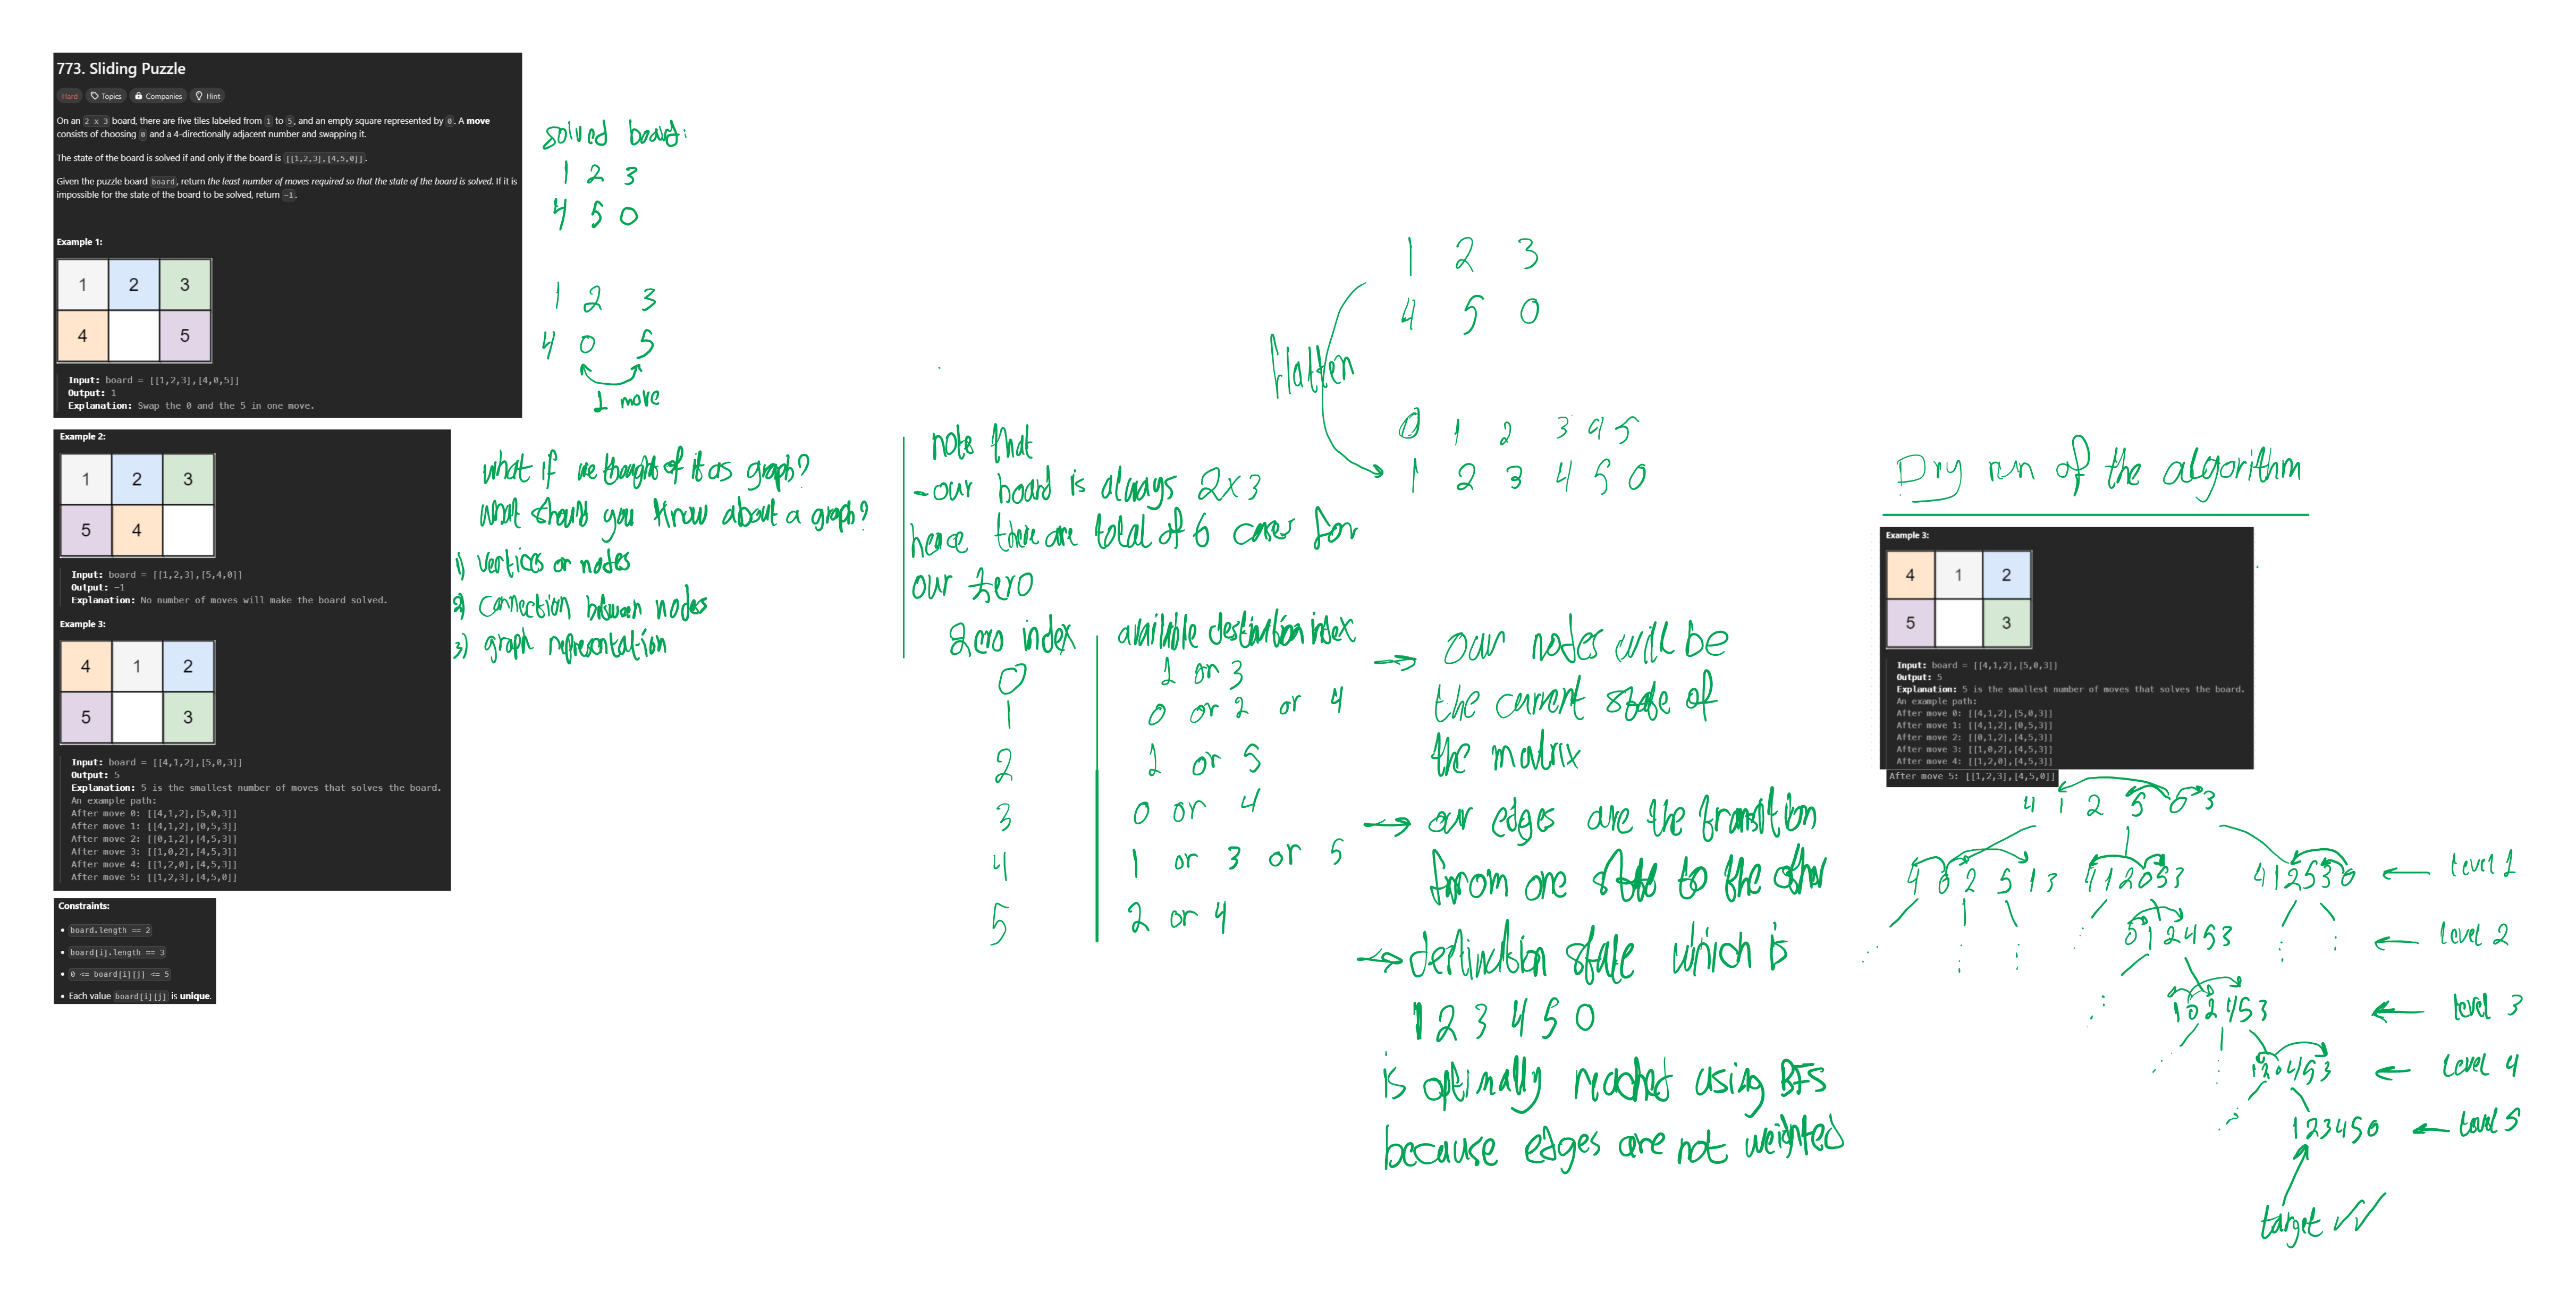 773. Sliding Puzzle
Hard Topics Companies Hint
On an 2 x 3 board, there are five tiles labeled from 1 to 5, and an empty square represented by 0. A move
consists of choosing 0 and a 4-directionally adjacent number and swapping it.
The state of the board is solved if and only if the board is [[1,2,3],[4,5,0]].
Given the puzzle board board, return the least number of moves required so that the state of the board is solved. If it is
impossible for the state of the board to be solved, return -1.
Example 1:
1 2 3
4 5
Input: board = [[1,2,3],[4,0,5]]
Output: 1
Explanation: Swap the 0 and the 5 in one move.
Example 2:
1 2 3
5 4
Input: board = [[1,2,3],[5,4,0]]
Output: -1
Explanation: No number of moves will make the board solved.
Example 3:
4 1 2
5 3
Input: board = [[4,1,2],[5,0,3]]
Output: 5
Explanation: 5 is the smallest number of moves that solves the board.
An example path:
After move 0: [[4,1,2],[5,0,3]]
After move 1: [[4,1,2],[0,5,3]]
After move 2: [[0,1,2],[4,5,3]]
After move 3: [[1,0,2],[4,5,3]]
After move 4: [[1,2,0],[4,5,3]]
After move 5: [[1,2,3],[4,5,0]]
Constraints:
• board.length == 2
• board[i].length == 3
• 0 <= board[i][j] <= 5
• Each value board[i][j] is unique.
solved board:
1 2 3
4 5 0
1 2 3
4 0 5
1 move
what if we thought of it as graph?
what should you know about a graph?
1) vertices or nodes
2) connection between nodes
3) graph representation
note that
- our board is always 2x3
hence there are total of 6 cases for
our zero
zero index available destination index
0 1 or 3
1 0 or 2 or 4
2 1 or 5
3 0 or 4
4 1 or 3 or 5
5 2 or 4
1 2 3
4 5 0
flatten
0 1 2 3 4 5
1 2 3 4 5 0
→ our nodes will be
the current state of
the matrix
→ our edges are the transition
from one state to the other
→ destination state which is
1 2 3 4 5 0
is optimally reached using BFS
because edges are not weighted
Dry run of the algorithm
Example 3:
4 1 2
5 3
Input: board = [[4,1,2],[5,0,3]]
Output: 5
Explanation: 5 is the smallest number of moves that solves the board.
An example path:
After move 0: [[4,1,2],[5,0,3]]
After move 1: [[4,1,2],[0,5,3]]
After move 2: [[0,1,2],[4,5,3]]
After move 3: [[1,0,2],[4,5,3]]
After move 4: [[1,2,0],[4,5,3]]
After move 5: [[1,2,3],[4,5,0]]
4 1 2 5 0 3
4 0 2 5 1 3 412053 412530 ← level 1
012453 ← level 2
102453 ← level 3
120453 ← level 4
123450 ← level 5
target ✓✓